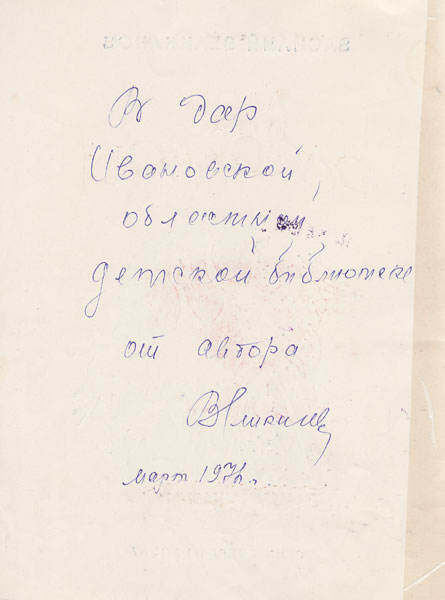 В дар
Ивановской
областной
детской библиотеке
от автора
март